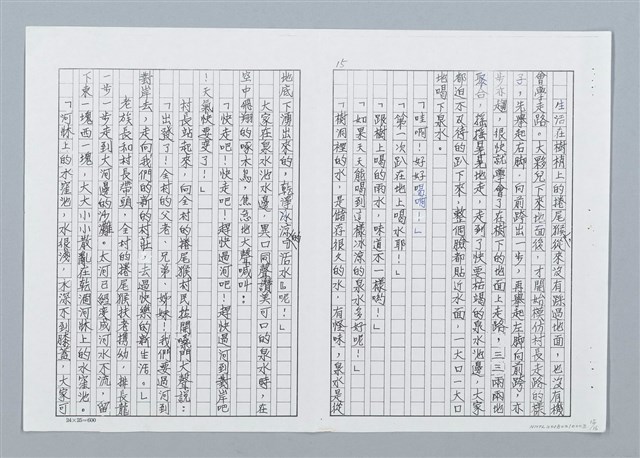 15
生活在樹梢上的捲尾猴從來沒有踩過地面，也沒有機
會學走路。大夥兒下來地面後，才開始模仿村長走路的樣
子，先舉起右腳，向前跨出一步，再舉起左腳向前跨，亦
步亦趨，很快就學會了在樹下的地面上走路，三三兩兩地
聚合，搖搖晃晃地走，走到了快要枯竭的泉水池邊，大家
都迫不及待的趴下來，整個臉都貼近水面，一大口一大口
地喝下泉水。
「哇啊！好好喝啊！」
「第一次趴在地上喝水耶！」
「跟樹上喝的雨水，味道不一樣喲！」
「如果天天能喝到這樣冰涼的泉水多好呢！」
「樹洞裡的水，是儲存很久的水，有怪味，泉水是從
地底下湧出來的，乾淨冰涼的『活水』呢！」
大家在泉水池水邊，異口同聲讚美可口的泉水時，在
空中飛翔的啄木鳥，焦急地大聲喊叫：
「快走吧！快走吧！趕快過河吧！趕快過河到對岸吧
！天氣快要變了！」
村長站起來，向全村的捲尾猴村民拉開嗓門大聲說：
「出發了！全村的父老、兄弟、姊妹！我們要過河到
對岸去，走向我們的新的村莊，去過快樂的新生活。」
老族長和村長帶頭，全村的捲尾猴扶老攜幼，排長龍
一步一步走到大河邊的沙灘。大河已經變成河水不流，留
下東一塊西一塊，大大小小散亂在乾涸河牀上的水窪池。
「河牀上的水窪池，水很淺，水深不到膝蓋，大家可
24×25=600